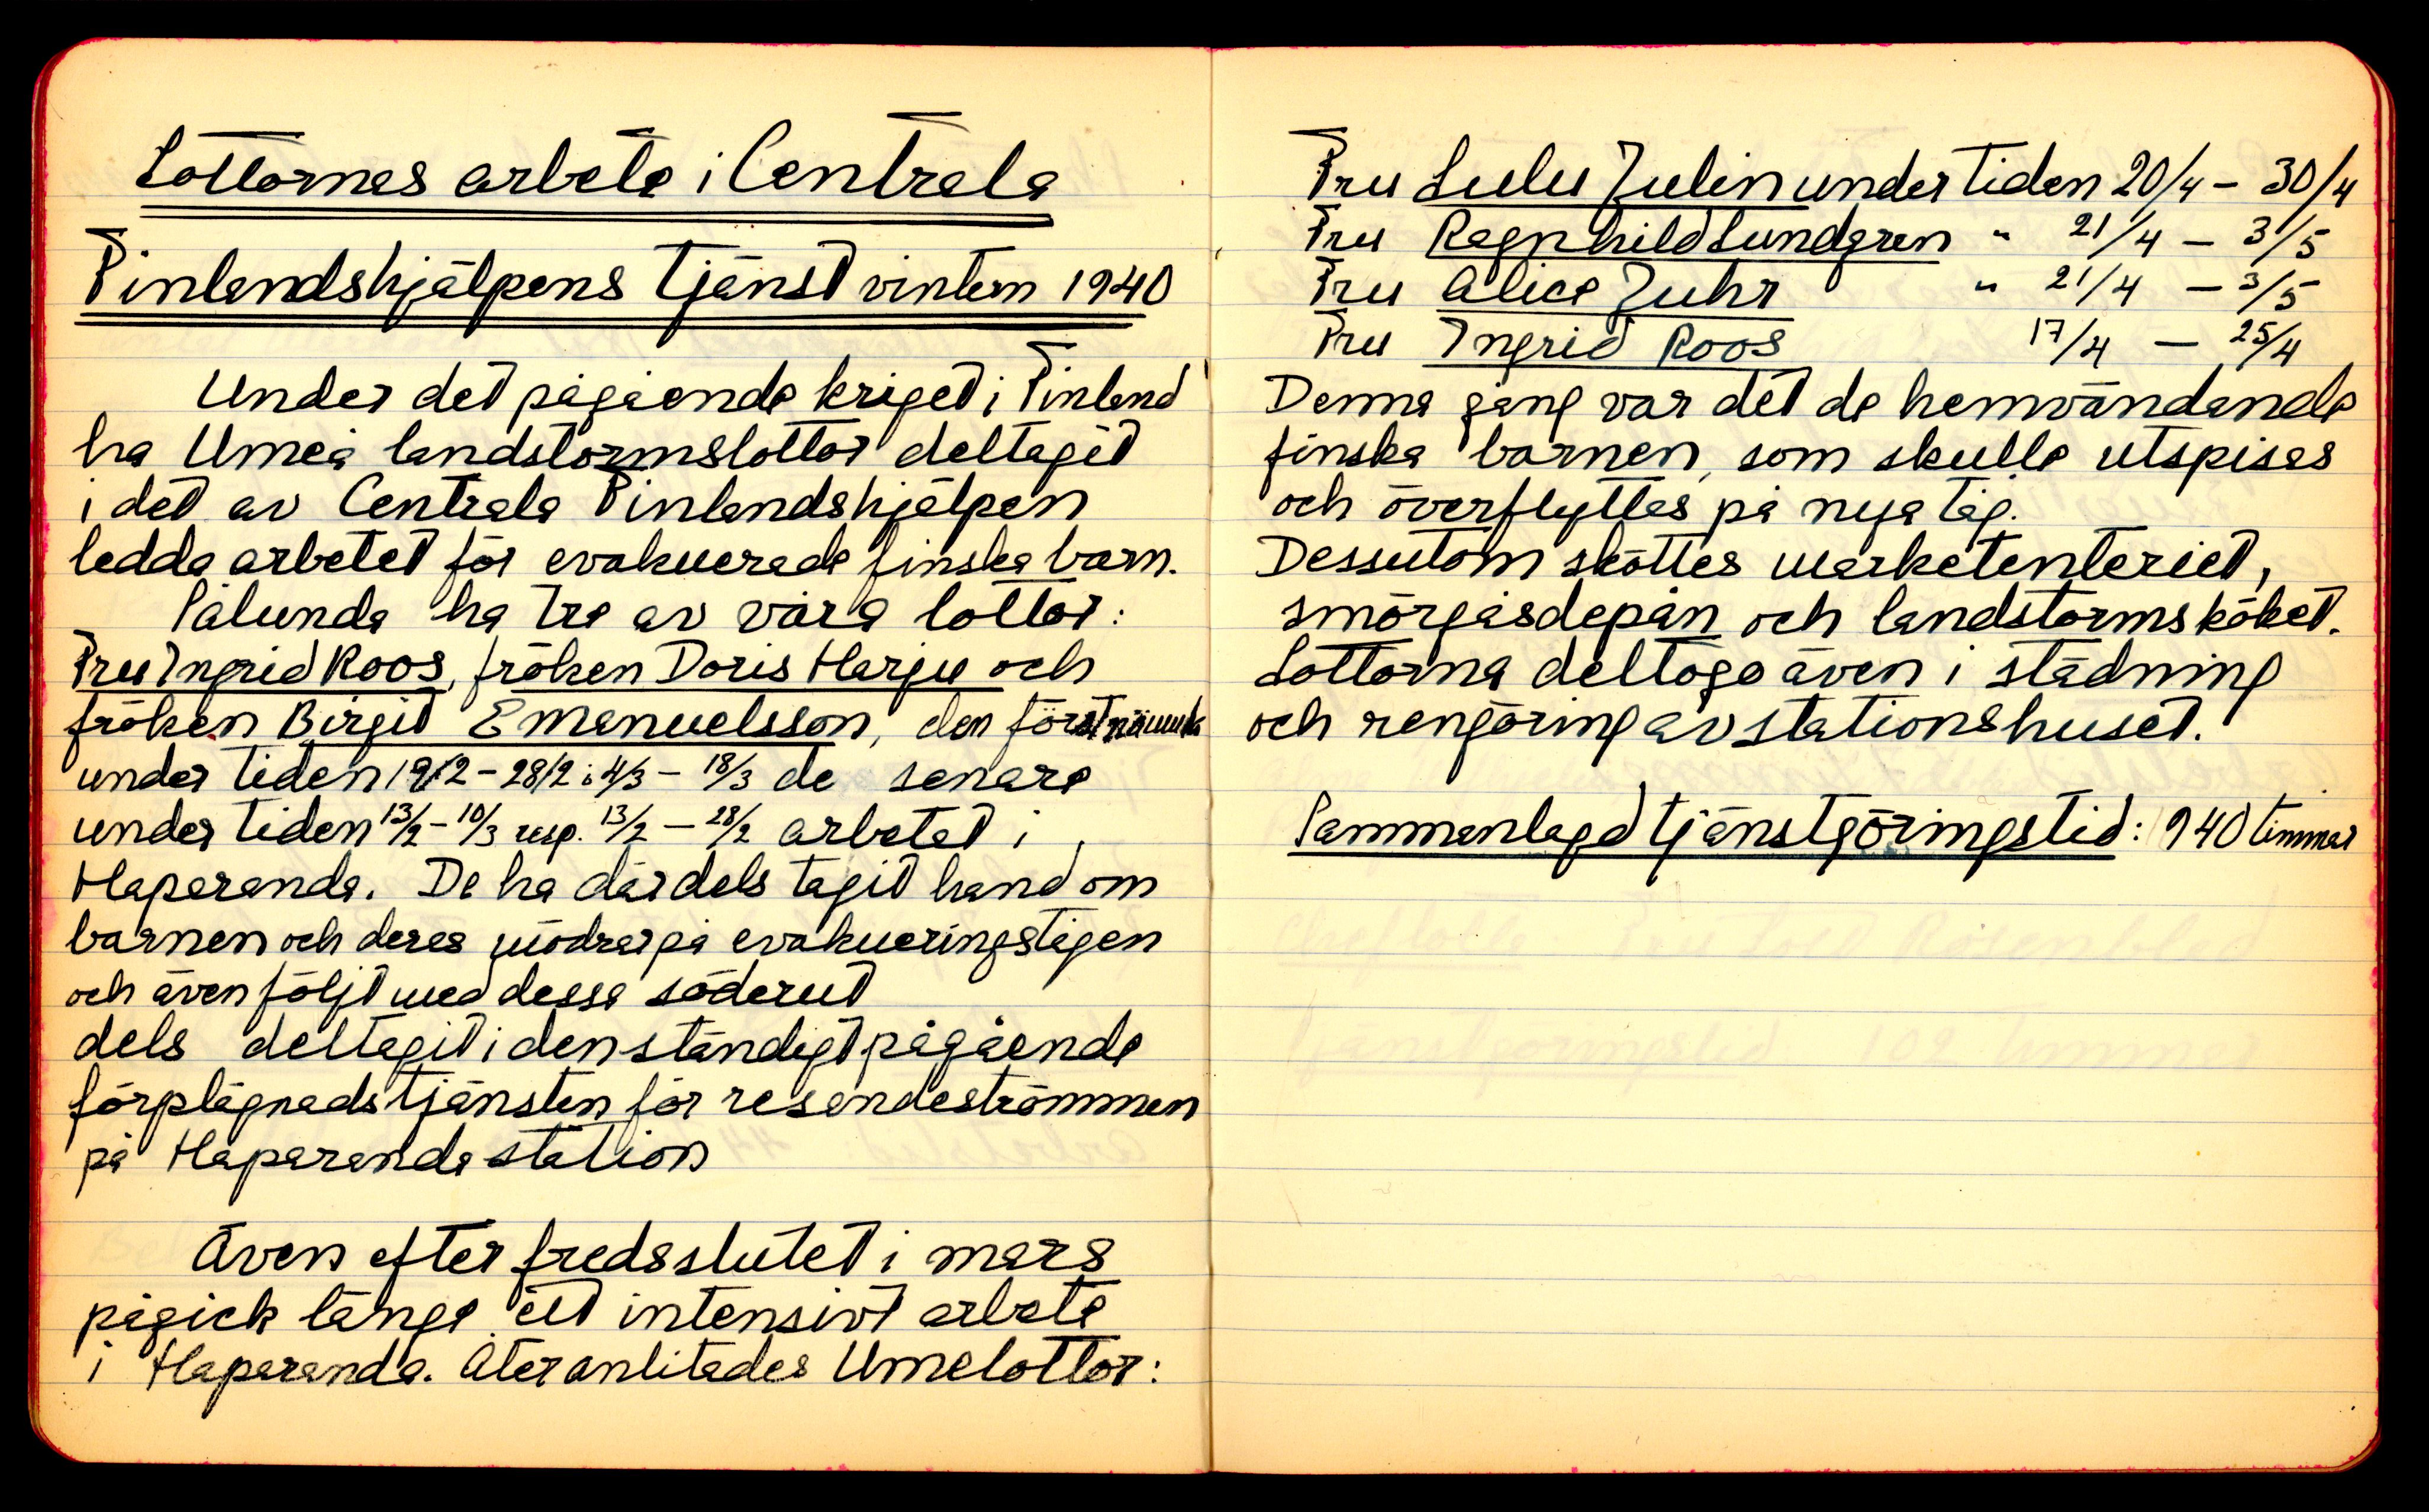 Lottornas arbete i Centrala
Finlandshjälpens tjänst vintern 1940
Under det pågående kriget i Finland
ha Umeå landstormslottor deltagit
i det av Centrala Finlandshjälpen
ledda arbetet för evakuerade finska barn.
Sålunda ha tre av våra lottor:
Fru Ingrid Roos, fröken Doris Harju och
fröken Birgit Emanuelsson, den förstnämnda
under tiden 19/2 - 28/2 : 4/3 - 18/3 de senare
under tiden 13/2 - 10/3 resp. 13/2 - 28/2 arbetat i
Haparanda. De ha där dels tagit hand om
barnen och deras mödrar på evakueringstågen
och även följt med dessa söderut
dels deltagit i den ständigt pågående
förplägnadstjänsten för resandeströmmen
på Haparanda station
Även efter fredsslutet i mars
pågick länge ett intensivt arbete
i Haparanda. Åter anlitades Umelottor:
Fru Lulu Julin under tiden 20/4 - 30/4
Fru Ragnhild Lundgren " 21/4 - 3/5
Fru Alice Juhr " 21/4 - 3/5
Fru Ingrid Roos 17/4 - 25/4
Denna gång var det de hemvändande
finska barnen, som skulle utspisas
och överflyttas på nya tåg.
Dessutom sköttes marketenteriet,
smörgåsdepån och landstormsköket.
Lottorna deltogo även i städning
och rengöring av stationshuset.
Sammanlagd tjänstgöringstid: 940 timmar